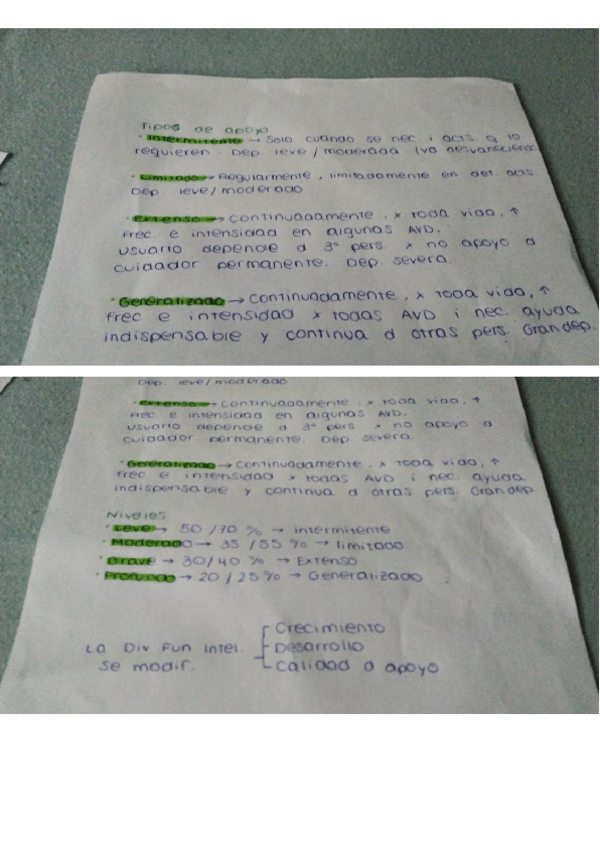 Tipos de apoyo
· Intermitente → Solo cuando se nec. i acts. q lo
requieren. Dep. leve / moderada. (va desvaneciéndo
· Limitado → Regularmente, limitadamente en det. acts.
Dep. leve/moderado
· Extenso → Continuadamente, x toda vida, ↑
Frec e intensidad en algunas AVD.
Usuario depende d 3ª pers. x no apoyo a
cuidador permanente. Dep. severa.
· Generalizado → Continuadamente, x toda vida, ↑
Frec e intensidad x todas AVD i nec. ayuda
indispensable y continua d otras pers. Gran dep.
Dep. leve/moderado
· Extenso → Continuadamente, x toda vida, ↑
Frec e intensidad en algunas AVD.
Usuario depende d 3ª pers. x no apoyo a
cuidador permanente. Dep severa.
· Generalizado → Continuadamente, x toda vida, ↑
frec e intensidad x todas AVD i nec. ayuda
indispensable y continua d otras pers. Gran dep.
Niveles
· Leve → 50 /70 % → intermitente
· Moderado → 35 /55 % → limitado
· Grave → 30/40 % → Extenso
· Profundo → 20 / 25 % → Generalizado
La Div Fun Intel.
se modif.
Crecimiento
Desarrollo
Calidad d apoyo